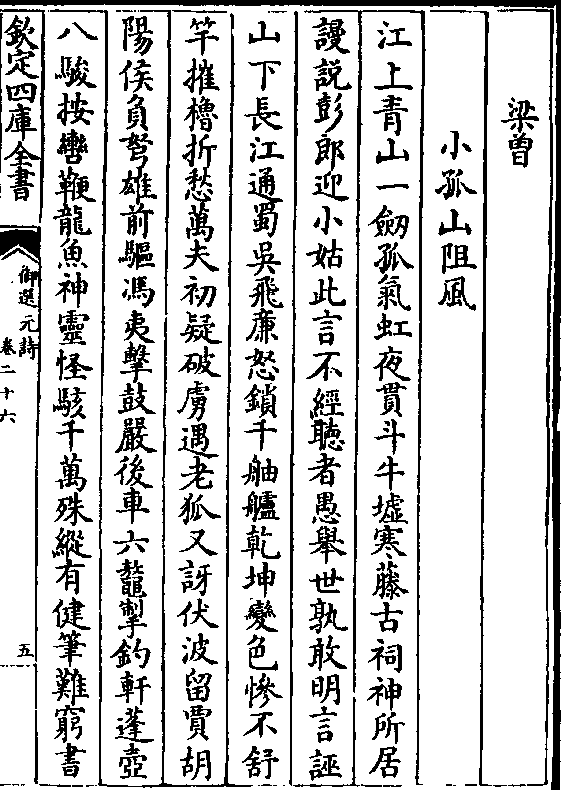 梁曽
小孤山阻風
江上青山一劔孤氣虹夜貫斗牛墟寒藤古祠神所居
謾説彭郎迎小姑此言不經聽者愚舉世孰敢明言誣
山下長江通蜀吳飛亷怒鎖千舳艫乾坤變色慘不舒
竿摧櫓折愁萬夫初疑破虜遇老狐又訝伏波留賈胡
陽侯負弩雄前驅馮夷擊鼓嚴後車六鼇掣釣軒蓬壺
八駿按轡鞭龍魚神靈怪駭千萬殊縱有健筆難窮書
欽定四庫全書
御選元詩
卷二十六
五